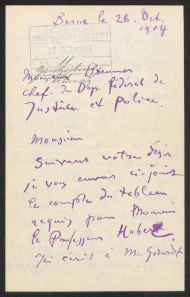 Berne le 26. Oct.
1904
27. X. 1904
Monsieur Brenner
chef du Dép. fédéral de
Justice et police.
Monsieur
Suivant votre désir
je vous envoie ci-joint
le compte du tableau
acquis pour Monsieur
le Professeur Huber.
J'ai écrit à M.